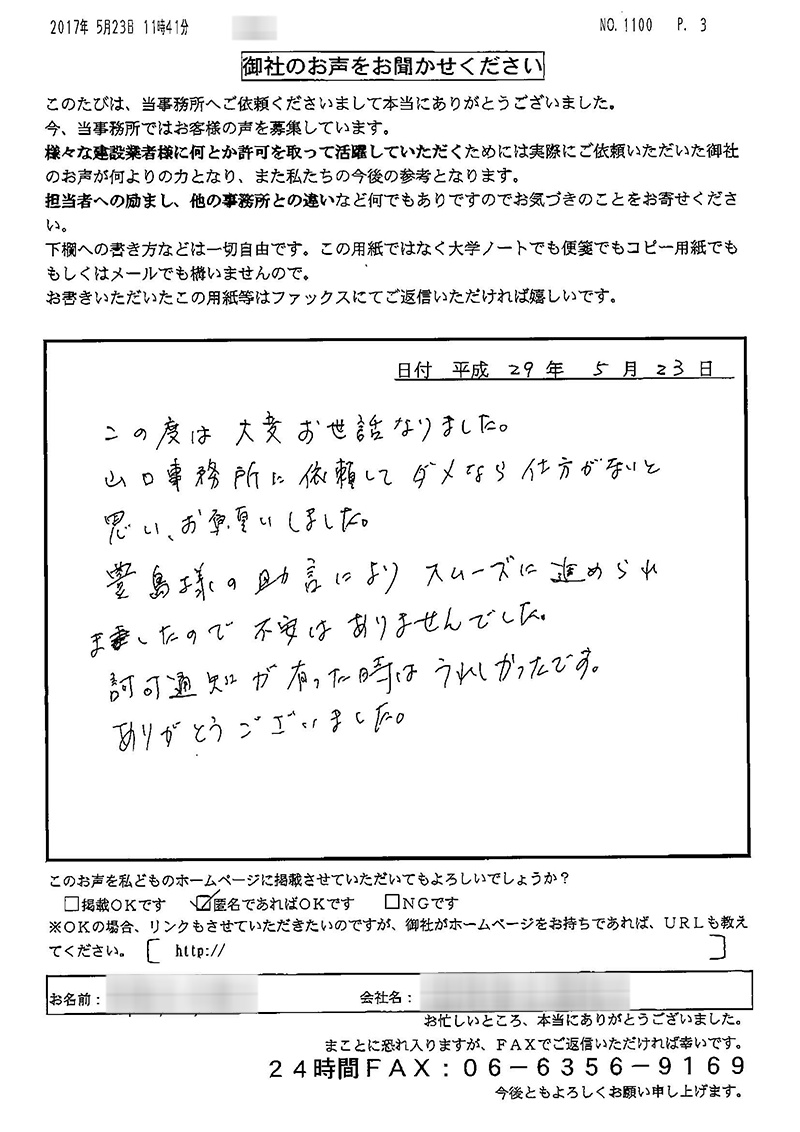 2017年 5月23日 11時41分 NO.1100 P. 3
御社のお声をお聞かせください
このたびは、当事務所へご依頼くださいまして本当にありがとうございました。
今、当事務所ではお客様の声を募集しています。
様々な建設業者様に何とか許可を取って活躍していただくためには実際にご依頼いただいた御社
のお声が何よりの力となり、また私たちの今後の参考となります。
担当者への励まし、他の事務所との違いなど何でもありですのでお気づきのことをお寄せくださ
い。
下欄への書き方などは一切自由です。この用紙ではなく大学ノートでも便箋でもコピー用紙でも
もしくはメールでも構いませんので。
お書きいただいたこの用紙等はファックスにてご返信いただければ嬉しいです。
日付 平成 29 年 5 月 23 日
この度は 大変 お世話なりました。
山口事務所に 依頼して ダメなら 仕方がないと
思い、お願いしました。
豊島様の助言により スムーズに 進められ
ましたので 不安は ありませんでした。
許可通知が 有った時は うれしかったです。
ありがとうございました。
このお声を私どものホームページに掲載させていただいてもよろしいでしょうか?
□掲載OKです ☑匿名であればOKです □NGです
※OKの場合、リンクもさせていただきたいのですが、御社がホームページをお持ちであれば、URLも教え
てください。 [ http:// ]
お名前: 会社名:
お忙しいところ、本当にありがとうございました。
まことに恐れ入りますが、FAXでご返信いただければ幸いです。
24時間FAX:06-6356-9169
今後ともよろしくお願い申し上げます。